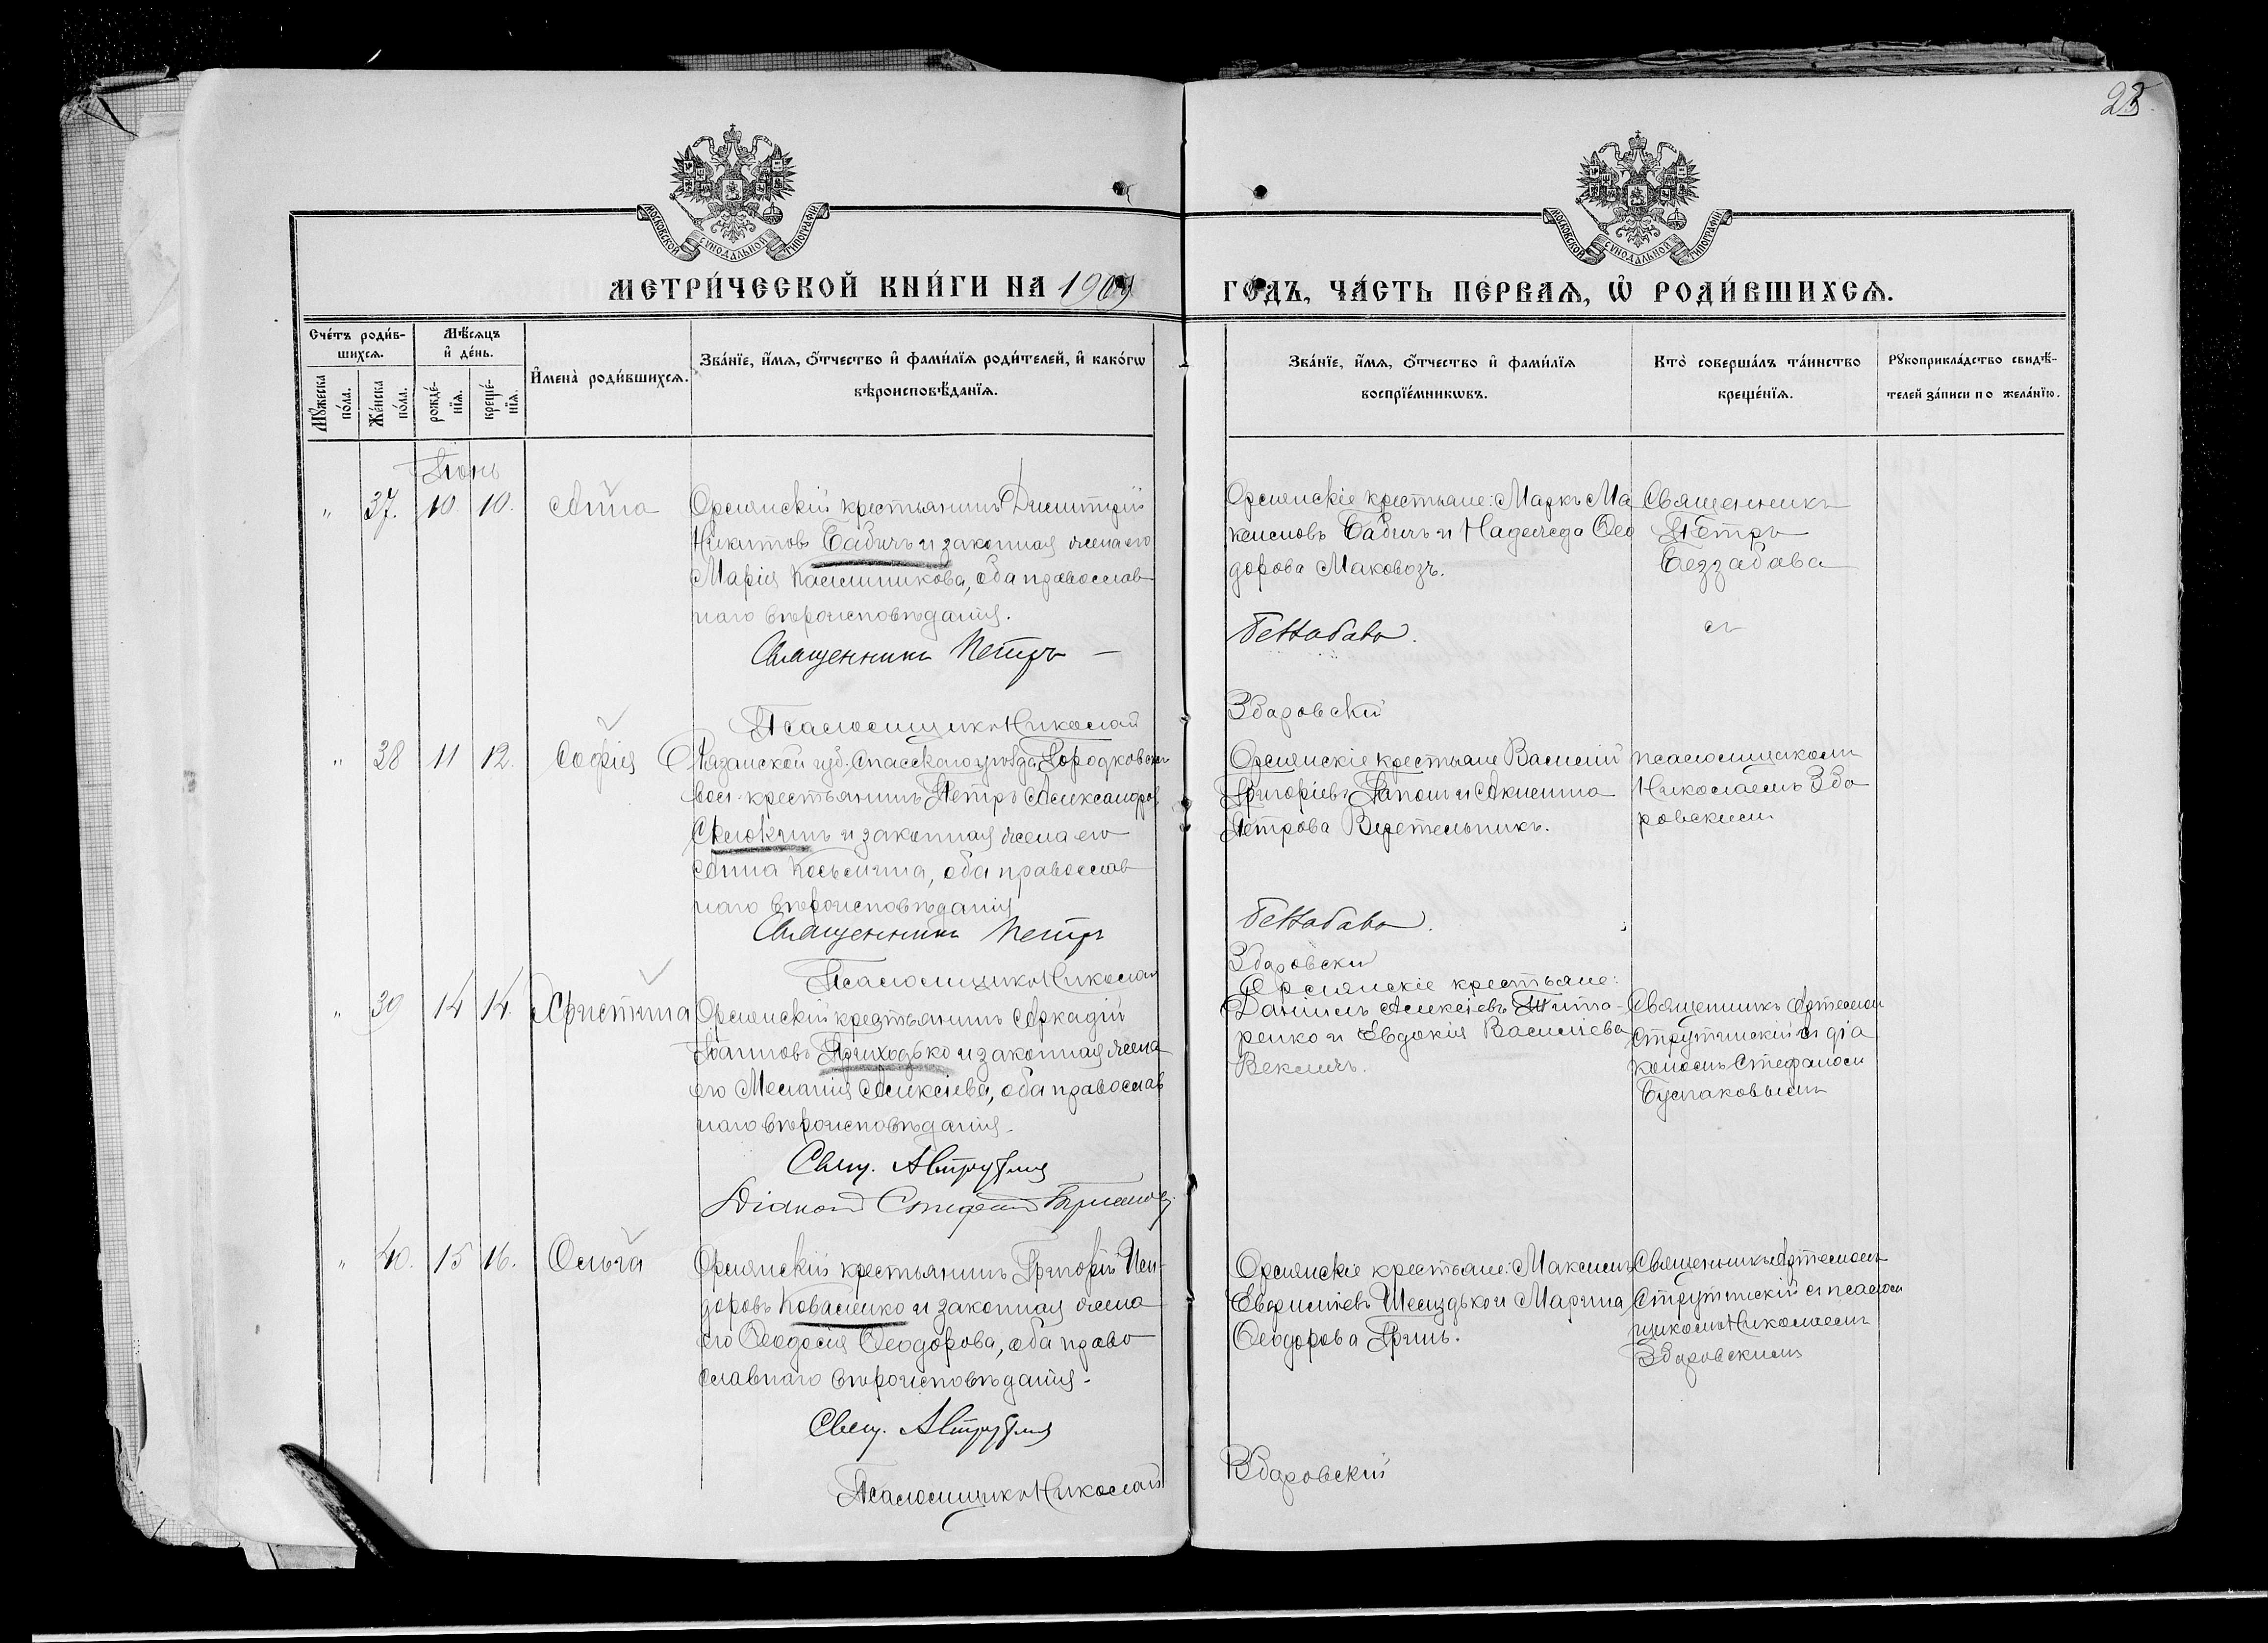 23
МОСКОВСКОЙ СѴНОДАЛЬНОЙ ТИПОГРАФІИ
МОСКОВСКОЙ СѴНОДАЛЬНОЙ ТИПОГРАФІИ
МЕТРИ́ЧЕСКОЙ КНИ́ГИ НА 1909 ГО́ДЪ, ЧА́СТЬ ПЕ́РВАѦ, Ѡ҆ РОДИ́ВШИХСѦ.
Счє́тъ роди́в-
шихсѧ.
Мѣ́сѧцъ
и҆ дє́нь.
И҆мєна̀ роди́вшихсѧ.
Зва́нїе, и҆́мѧ, ѻ҆́тчество и҆ фами́лїѧ роди́телей, и҆ како́гѡ
вѣроисповѣ́данїѧ.
Мꙋ́жеска
по́ла.
Же́нска
по́ла.
рожде́-
нїѧ.
креще́-
нїѧ.
Зва́нїе, и҆́мѧ, ѻ҆́тчество и҆ фами́лїѧ
воспрїе́мникѡвъ.
Кто̀ соверша́лъ та́инство
креще́нїѧ.
Рꙋкоприкла́дство свидѣ́-
телей за́писи по жела́нїю.
Іюнь
" 37. 10. 10. Анна
Орлянскій крестьянинъ Димитрій
Никитовъ Бабичъ и законная жена его
Марія Калинникова, оба православ
наго вѣроисповѣданія.
Священникъ Петръ
Псаломщикъ Николай
Орлянскіе крестьяне: Маркъ Ма
ксимовъ Бабичъ и Надежда Ѳео
дорова Маковозъ.
Беззабава.
Збаровскій
Священникъ
Пётръ
Беззабава
съ
" 38 11 12. Софія
Рязанской губ. Спасскаго уѣзда, Городковской
вол. крестьянинъ Петръ Александров
и законная жена его
Анна Косьмина, оба православ
наго вѣроисповѣданія
Священникъ Петръ
Псаломщикъ Николай
Орлянскіе крестьяне Василій
Григоріевъ и Акилина
Петрова
Беззабава.
Збаровскій
псаломщикомъ
Николаемъ Зба
ровскимъ
" 39 14 14. Христина
Орлянскій крестьянинъ Аркадій
Іоанновъ Приходько и законная жена
его Меланія Алексіева, оба православ
наго вѣроисповѣданія.
Свящ. А Струтинскій
Діаконъ Стефанъ
Орлянскіе крестьяне:
Даніилъ Алексіевъ Тита-
ренко и Евдокія Василіева
Векличъ.
Священникъ Артемонъ
Струтинскій съ діа
кономъ Стефаномъ
" 40. 15 16. Ольга
Орлянскій крестьянинъ Григорій Иси-
доровъ Коваленко и законная жена
его Ѳеодосія Ѳеодорова, оба право
славнаго вѣроисповѣданія.
Свящ. А Струтинскій
Псаломщикъ Николай
Орлянскіе крестьяне: Максимъ
Евфиміевъ и Марина
Ѳеодорова Гришъ.
Збаровскій
Священникъ Артемонъ
Струтинскій съ псалом
щикомъ Николаемъ
Збаровскимъ